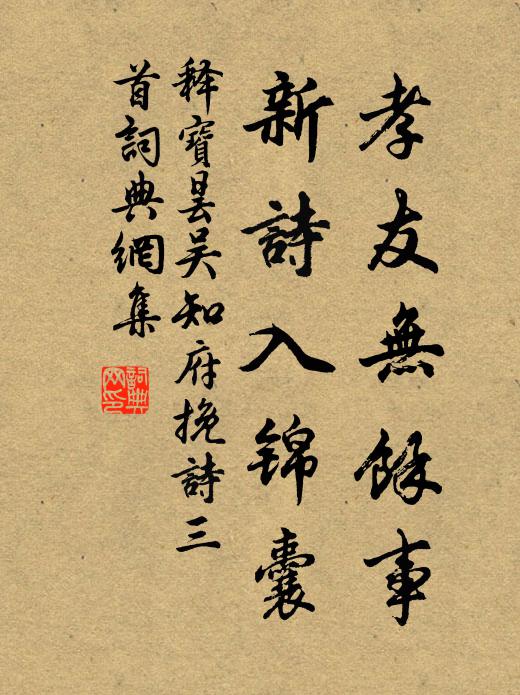 孝友無餘事
新詩入錦囊
釋寶曇吴知府挽詩三
首詞典網集
詞典網印